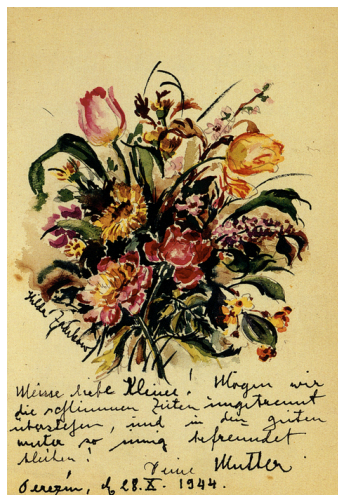 Hilda Zadikow
Meine liebe Kleine! Mögen wir
die schlimmen Zeiten ungetrennt
überstehen, und in den guten
weiter so innig befreundet
bleiben!
Deine Mutter.
Terezín, d. 28.X. 1944.